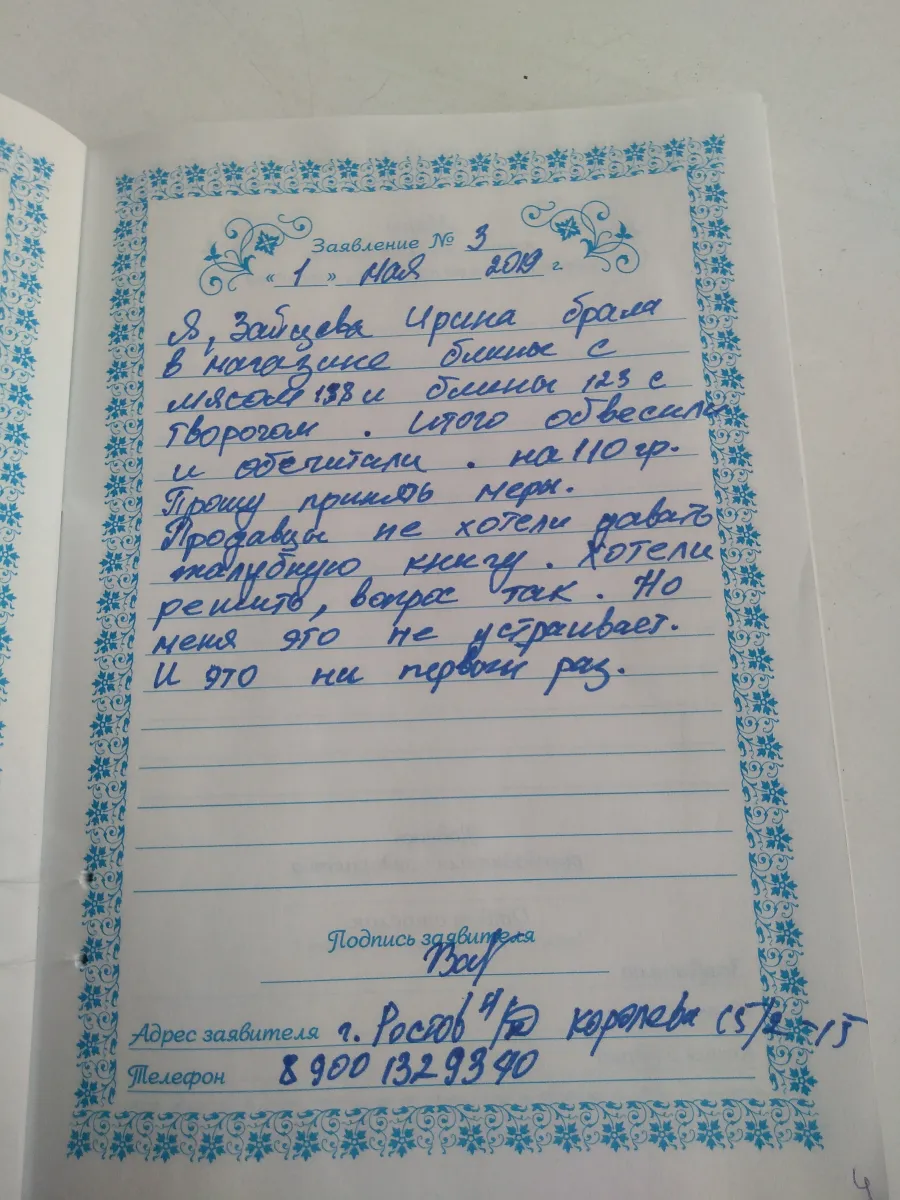 Заявление № 3
« 1 » мая 2019 г.
Я, Зайцева Ирина брала
в магазине блины с
мясом 138 и блины 123 с
творогом . Итого обвесили
и обсчитали . на 110 гр.
Прошу принять меры.
Продавцы не хотели давать
жалубную книгу . Хотели
решить, вопрос так . Но
меня это не устраивает.
И это ни первый раз.
Подпись заявителя
Адрес заявителя г. Ростов н/Д Королева 15/2 - 15
Телефон 8 900 1329340
4